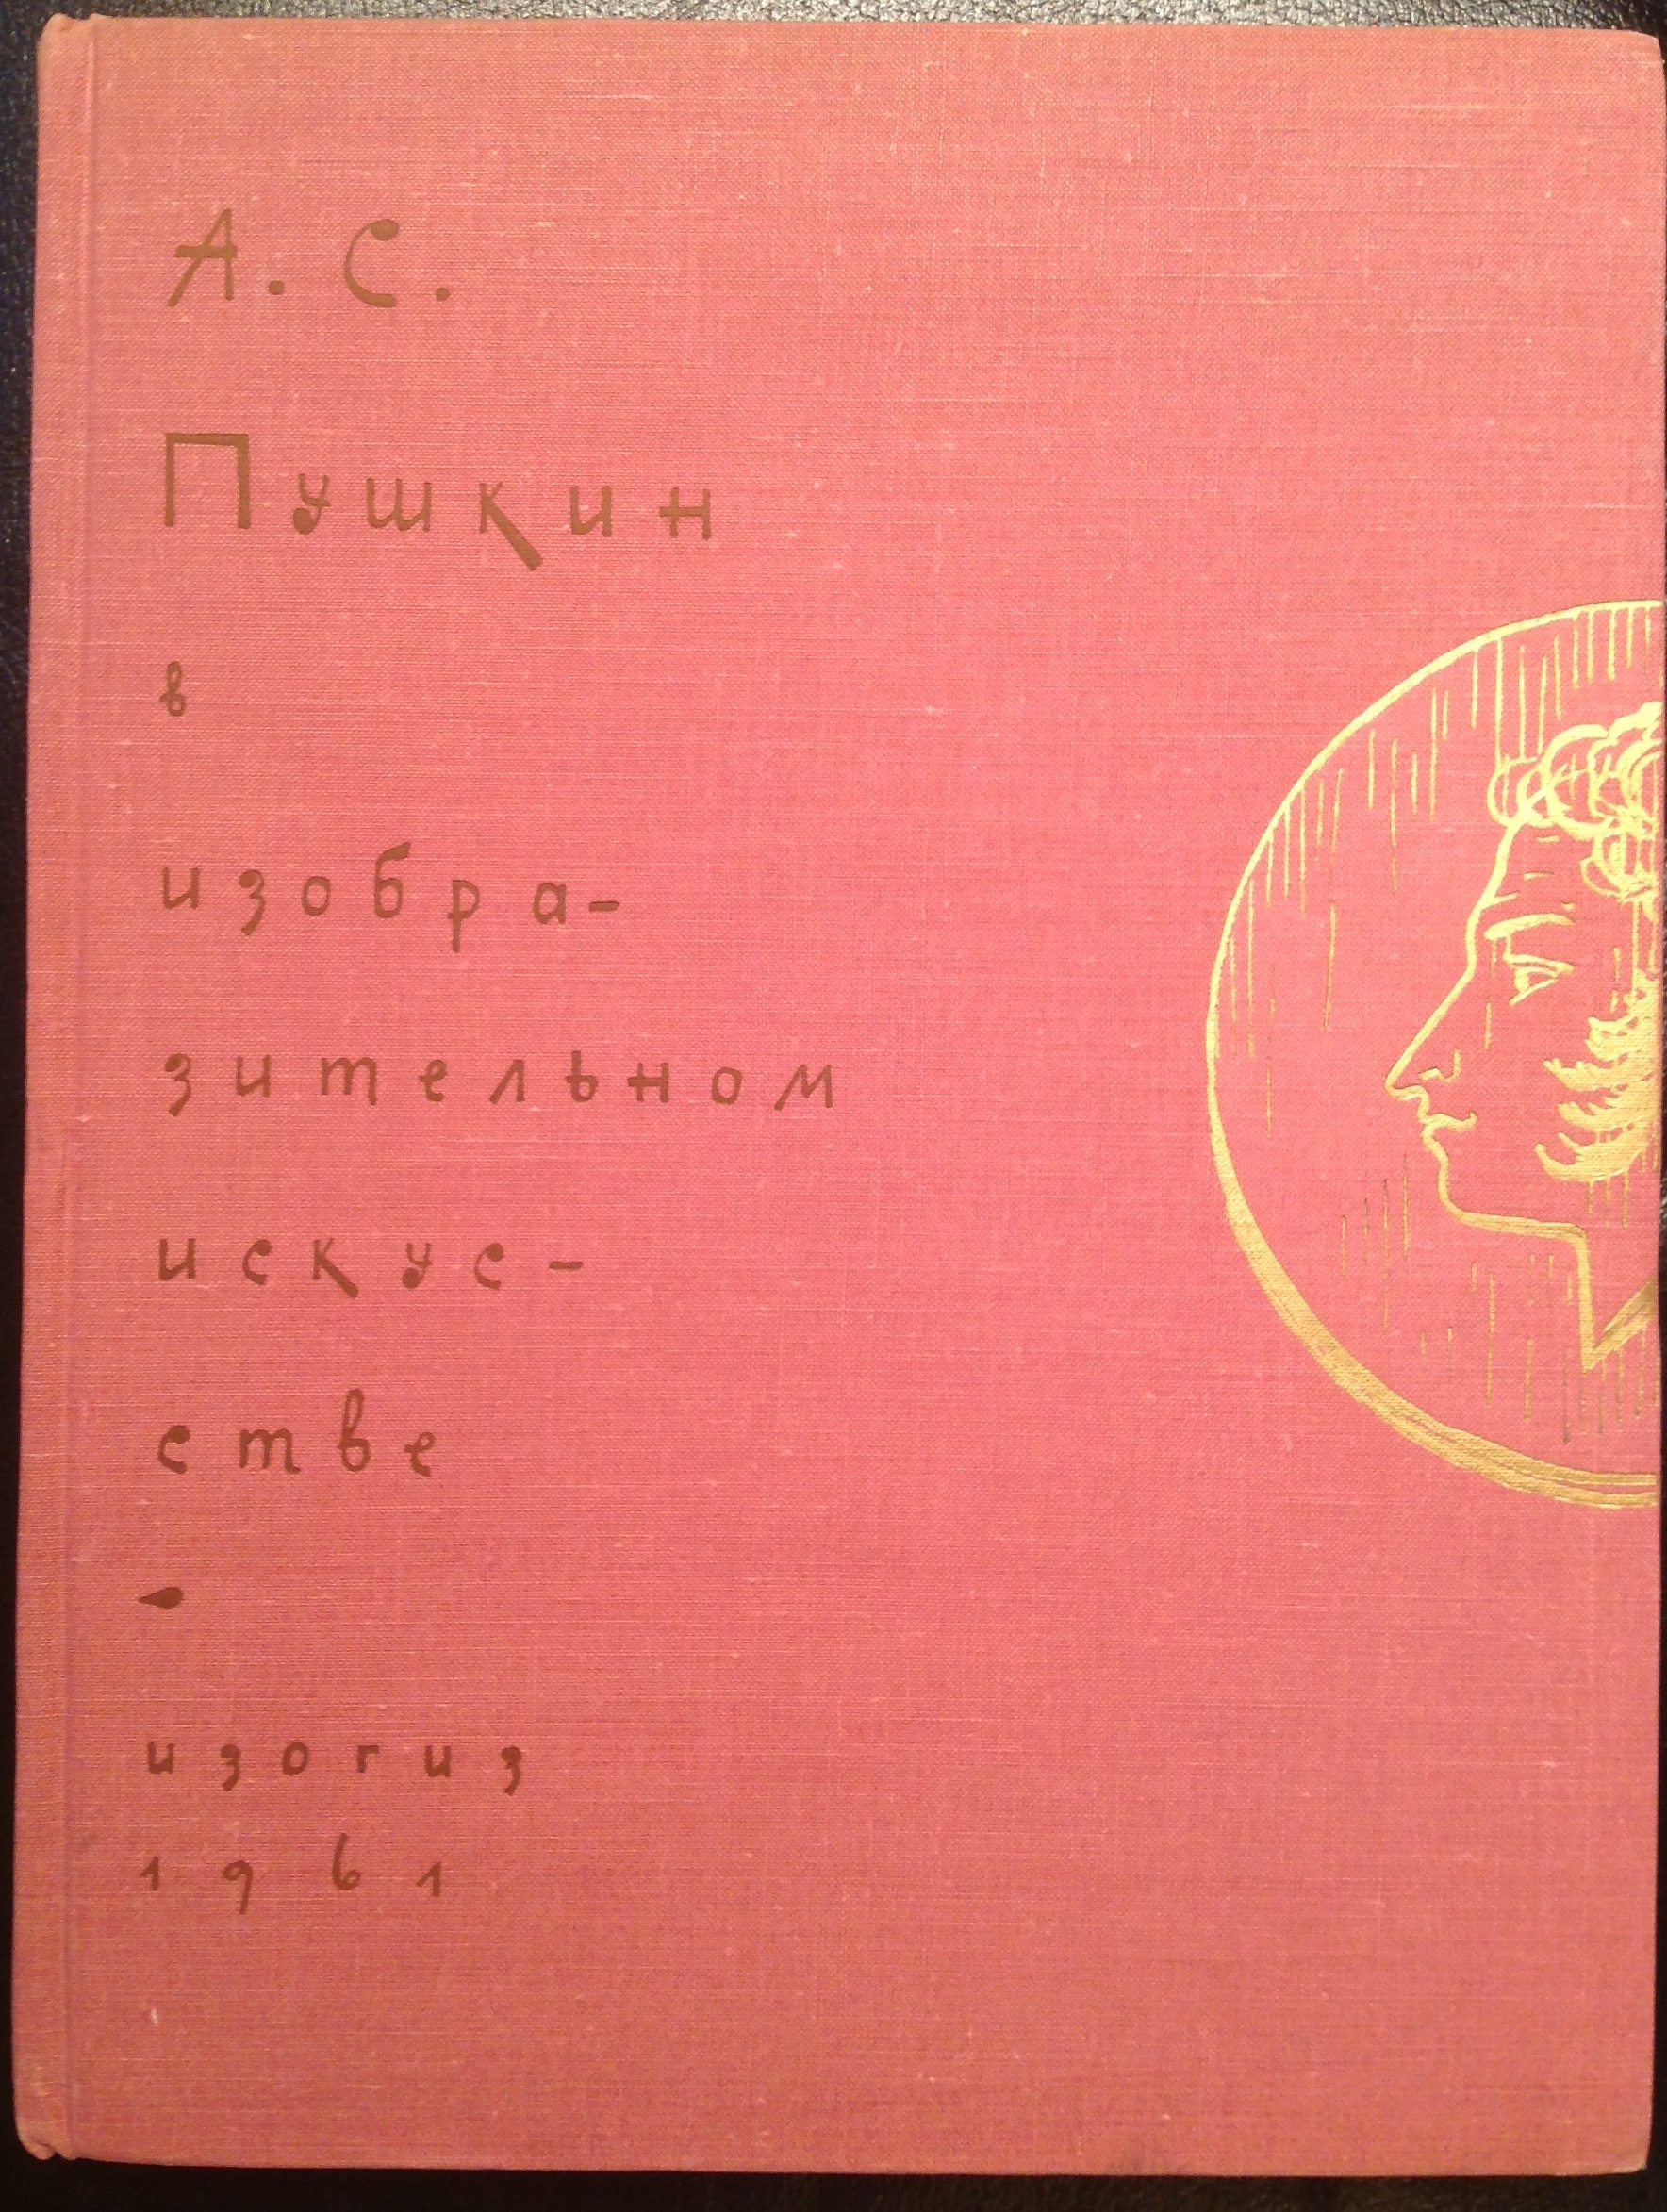 А. С.
Пушкин
в
изобра-
зительном
искус-
стве
изогиз
1961